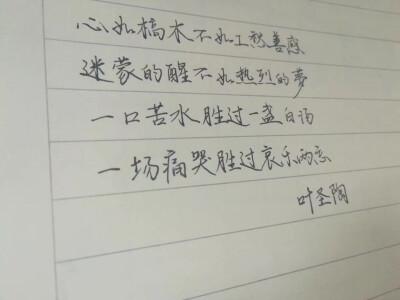 心如槁木不如工愁善感
迷蒙的醒不如热烈的梦
一口苦水胜过一盏白汤
一场痛哭胜过哀乐两忘
叶圣陶